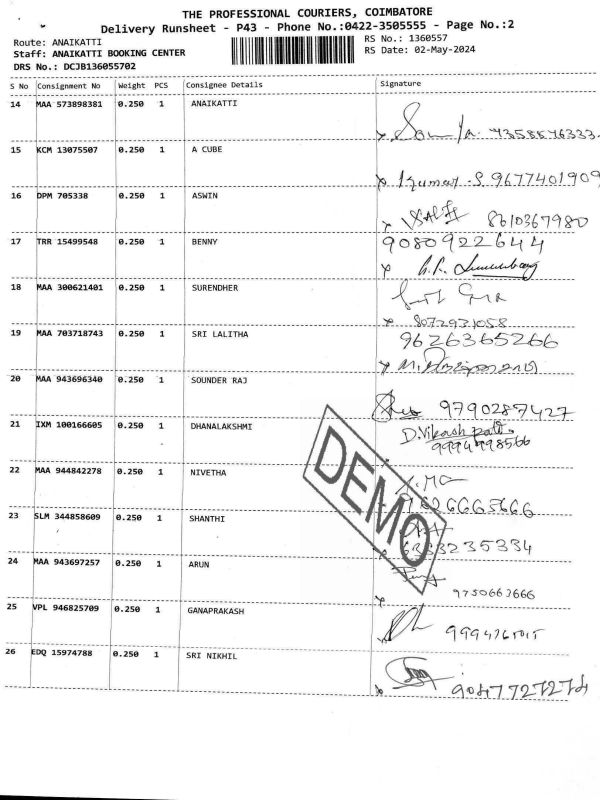 THE PROFESSIONAL COURIERS, COIMBATORE
Delivery Runsheet - P43 - Phone No.:0422-3505555 - Page No.:2
Route: ANAIKATTI
RS No.: 1360557
Staff: ANAIKATTI BOOKING CENTER
RS Date: 02-May-2024
DRS No.: DCJB136055702
S No Consignment No Weight PCS Consignee Details Signature
14 MAA 573898381 0.250 1 ANAIKATTI
15 KCM 13075507 0.250 1 A CUBE
Kumar .S 9677401909
16 DPM 705338 0.250 1 ASWIN
8610367980
17 TRR 15499548 0.250 1 BENNY
9080922644
18 MAA 300621401 0.250 1 SURENDHER
8072931058
19 MAA 703718743 0.250 1 SRI LALITHA
9626365266
20 MAA 943696340 0.250 1 SOUNDER RAJ
9790287427
21 IXM 100166605 0.250 1 DHANALAKSHMI
D.Vikash
9994998566
22 MAA 944842278 0.250 1 NIVETHA
23 SLM 344858609 0.250 1 SHANTHI
24 MAA 943697257 0.250 1 ARUN
9750663666
25 VPL 946825709 0.250 1 GANAPRAKASH
26 EDQ 15974788 0.250 1 SRI NIKHIL
9047727274
DEMO